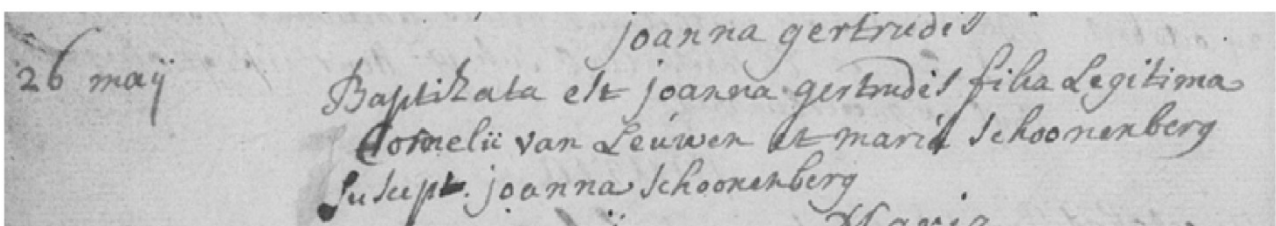 joanna gertrudis
26 maÿ
Baptizata est joanna gertrudis filia Legitima
Cornelii van Leúwen et maria Schoonenberg
Suscept. joanna Schoonenberg
Maria